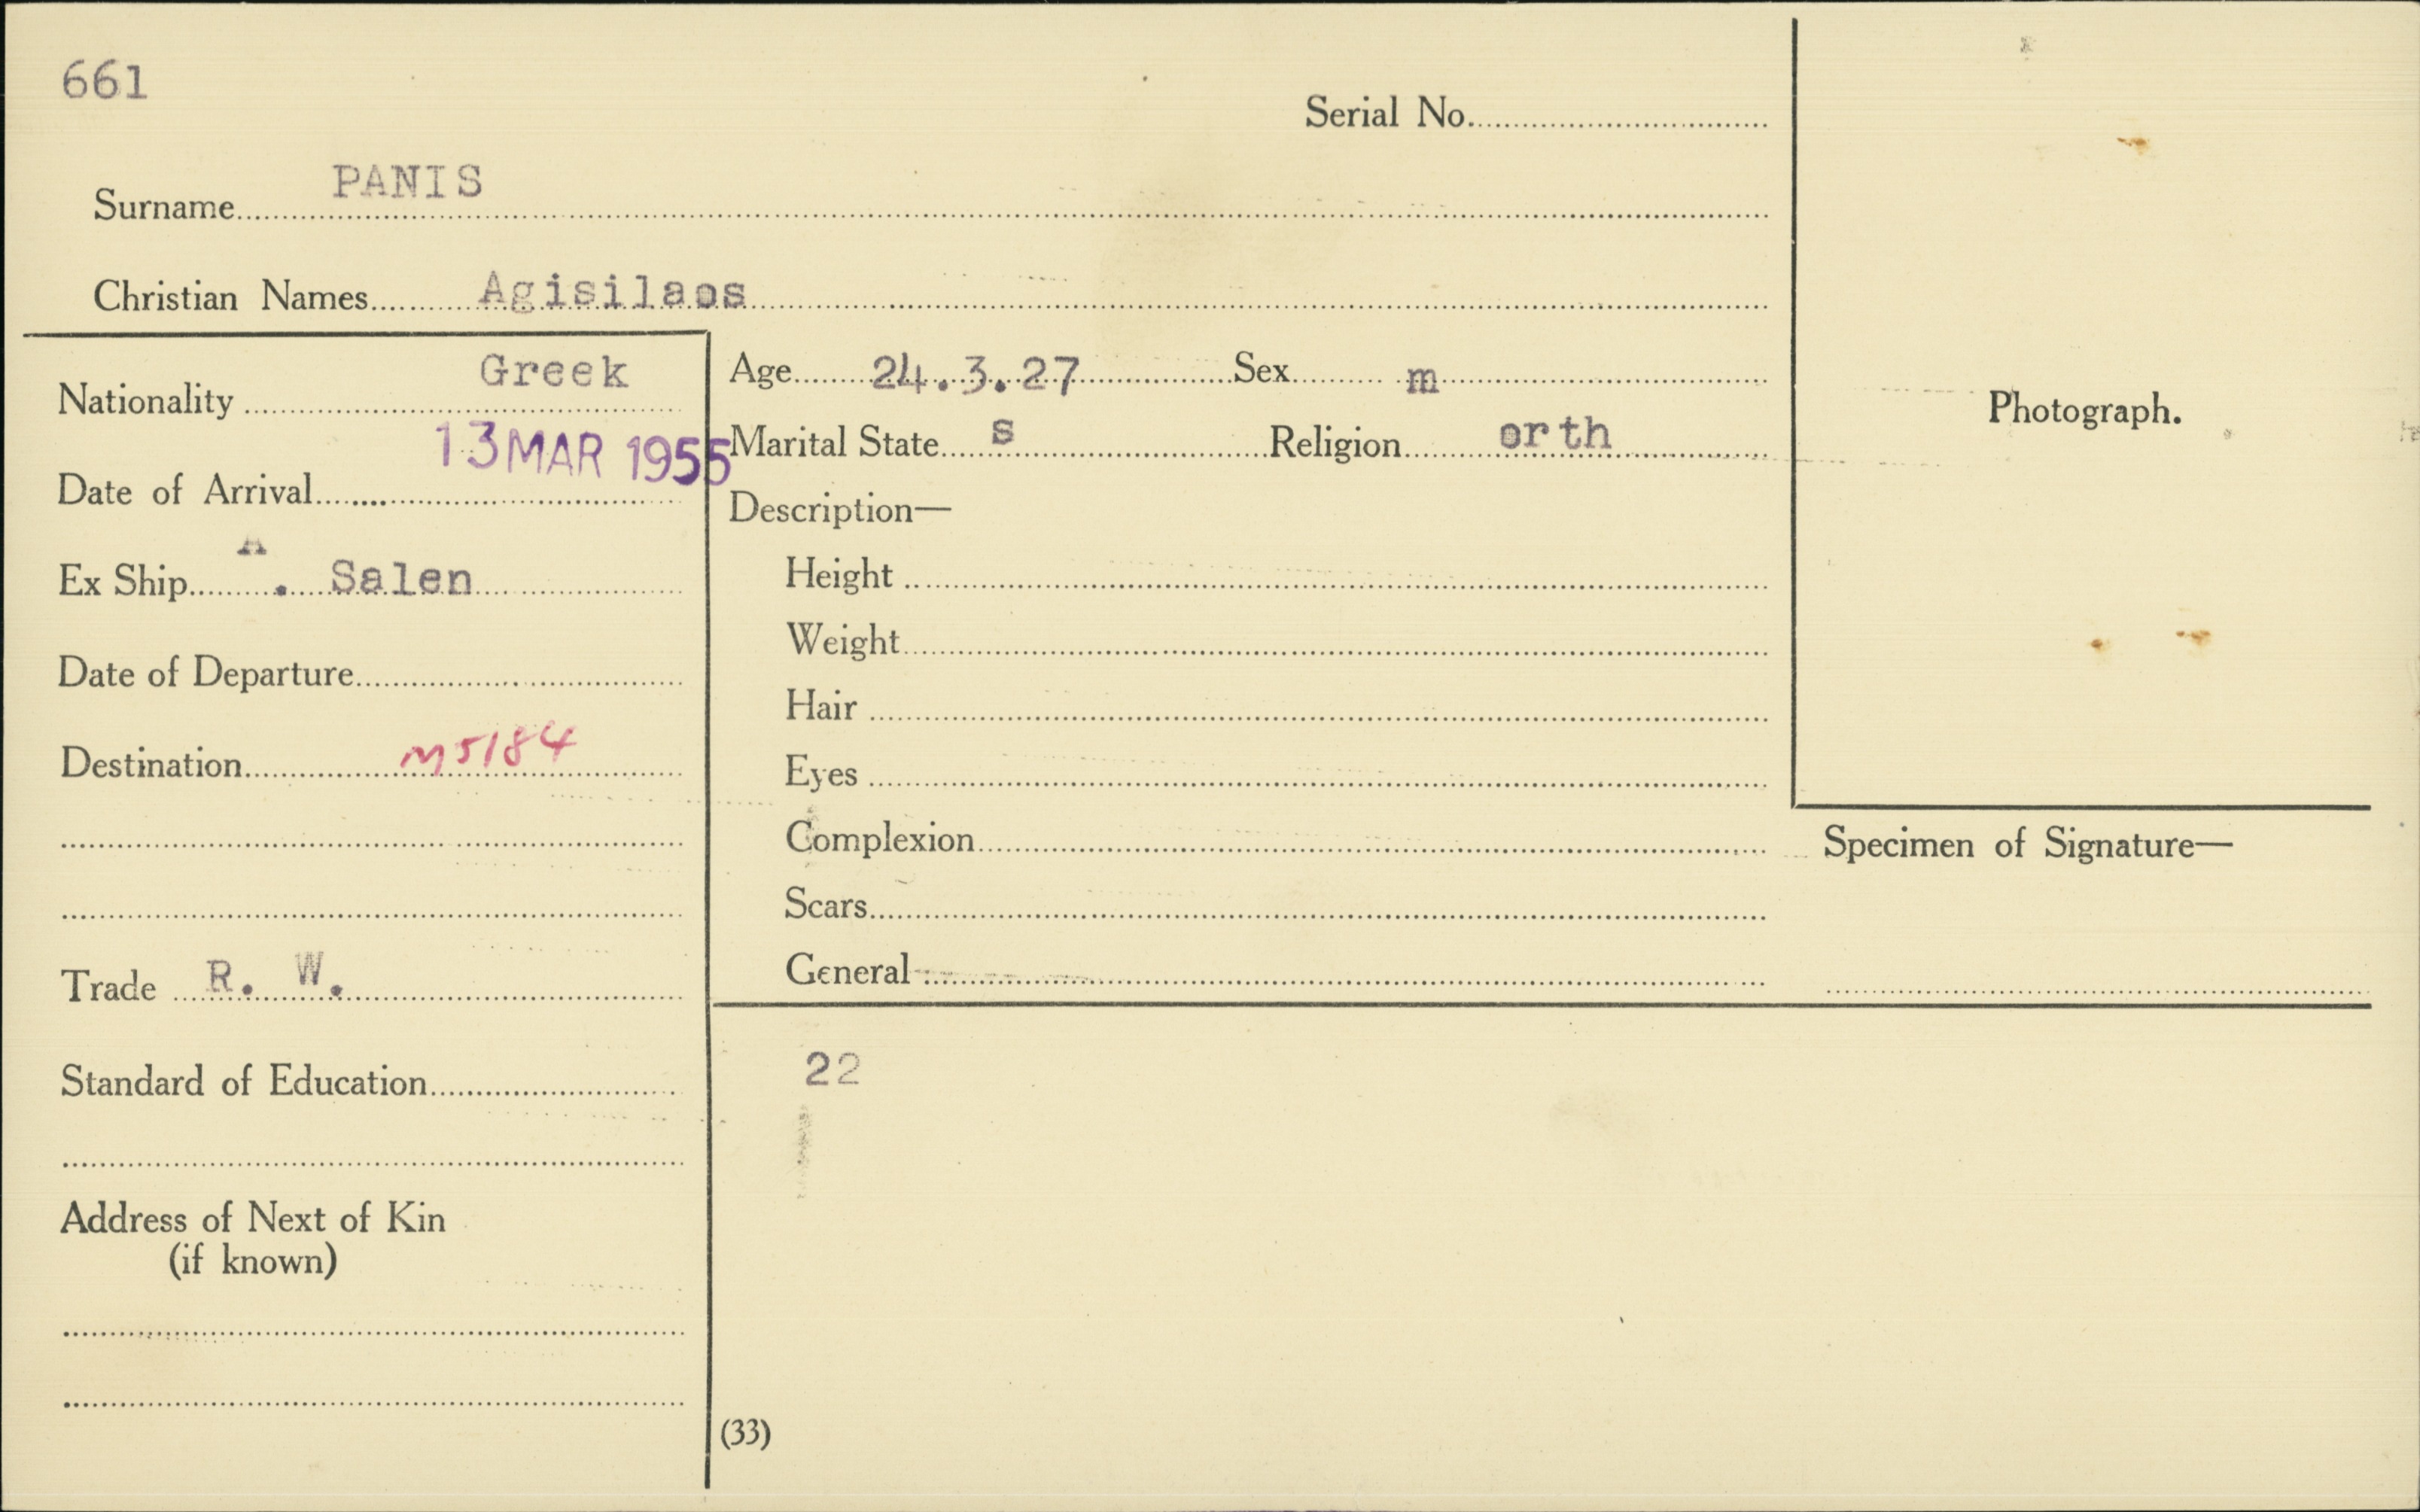 661
Serial No.
Surname PANIS
Christian Names Agisilaos
Nationality Greek
Date of Arrival 13 MAR 1955
Ex Ship A. Salen
Date of Departure
Destination M5184
Trade R. W.
Standard of Education
Address of Next of Kin
(if known)
Age 24.3.27 Sex m
Marital State s Religion orth
Description—
Height
Weight
Hair
Eyes
Complexion
Scars
General
22
(33)
Photograph.
Specimen of Signature—